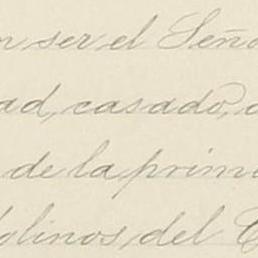 ser el Seño
ad, casado,
de la prim
olinos, del